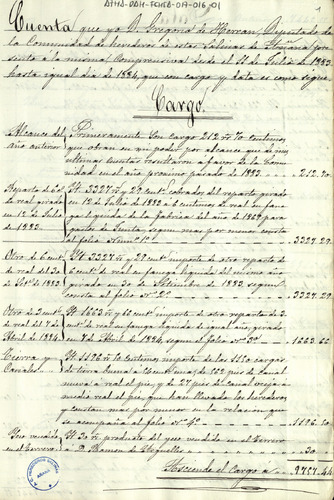 ATHA-DAH-FCHEA-019-016-01
1
Cuenta que yo D. Gregorio de Herran, Diputado de
la Comunidad de herederos de estas Salinas de Añana pre-
senta a la misma, Comprensiva desde el 31 de Julio de 1883
hasta igual dia de 1884, que con cargo y data es como sigue
Cargo
Alcance del año anterior
Primeramente son cargo 212 rs 70 centimos
que obran en mi poder por alcance que de mis
ultimas cuentas resultaron a favor de la Comu-
nidad en el año proximo pasado de 1883.
212.70
Reparto de 6 ct de real girado en 12 de Julio de 1883.
It. 3327 rs y 29 centimos cobrados, del reparto girado
en 12 de Julio de 1883 a 6 centimos de real en fane-
ga liquida de la fabrica del año de 1869 para
gastos de Junta, segun mas por menor consta
al folio num. 1º
3327.29
Otro de 6 cent de real de 30 de Set. de 1883
It. 3327 rs y 29 cent. importe de otro reparto de 6
cent. de real en fanega liquida del mismo año
girado en 30 de Setiembre de 1883 segun
consta al folio nº 2º
3327.29
Otro de 3 cent de real del 7 de Abril de 1884.
It. 1663 rs y 66 cent. importe de otro reparto de 3
cent. de real en fanega liquida de igual año, girado
en 7 de Abril de 1884, segun el folio nº 3º
Tierra y Canales.
It. 1196 rs 10 centimos importe de las 1150 cargas
de tierra buena a
pies de canal
nueva a real el pie, y de 27 pies de canal vieja a
medio real el pie, que han llevado los herederos
y constan mas por menor en la relacion que
se acompaña al folio nº 4º
1196.10
Yeso vendido en el Terrero
It. 30 rs producto del yeso vendido en el Terrero
a D. Ramon de
30
Asciende el Cargo a
9757.44